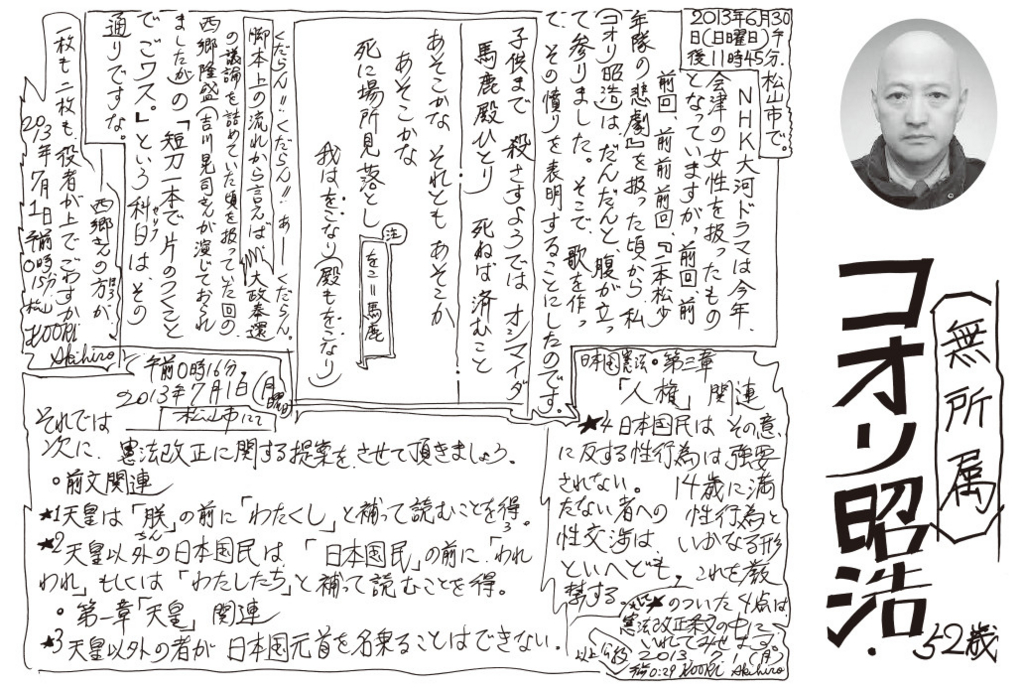 2013年6月30
日(日曜日)午
後11時45分.
松山市で。
NHK大河ドラマは今年、
会津の女性を扱ったもの
となっていますが、前回、前
前回、前前前回、『二本松少
年隊の悲劇』を扱った頃から、私
(コオリ昭浩)は、だんだんと腹が立っ
て参りました。そこで、歌を作っ
て、その憤りを表明することにしたのです。
子供まで 殺さすようでは オシマイダ
馬鹿殿ひとり 死ねば済むこと
あそこかな それとも あそこか
あそこかな
死に場所見落とし
我はをこなり(殿もをこなり)
注
をこ=馬鹿
くだらん!!くだらん!! あーくだらん。
脚本上の流れから言えば、大政奉還
の議論を詰めていた頃を扱っていた回の
西郷隆盛(吉川晃司さんが演じておられ
ましたが)の「短刀一本で片のつくこと
でごワス。」という科白は、その
セリフ
通りですな。
西郷さんの方が、
一枚も二枚も、役者が上でごわすか
2013年7月1日午前
0時15分.松山
KOORi
Akihiro
午前0時16分,
2013年7月1日(月曜日)
松山市にて
それでは
次に、憲法改正に関する提案を、させて頂きましょう。
○前文関連
★1天皇は「朕」の前に「わたくし」と補って読むことを得。
★2天皇以外の日本国民は、「日本国民」の前に、「われ
われ」もしくは「わたしたち」と補って読むことを得。
○第一章「天皇」関連
★3天皇以外の者が 日本国元首を名乗ることはできない。
日本国憲法・第三章
「人権」関連
★4日本国民は、その意
に反する性行為は強要
されない。 14歳に満
たない者への 性行為と
性交渉は、いかなる形
といへども、これを厳
禁する。
★のついた4点は、
憲法改正案文の中に
いれてみせます。
以上公約
2013.7.1(月)
0:29 KOORi Akihiro
無所属
コオリ昭浩.
52歳